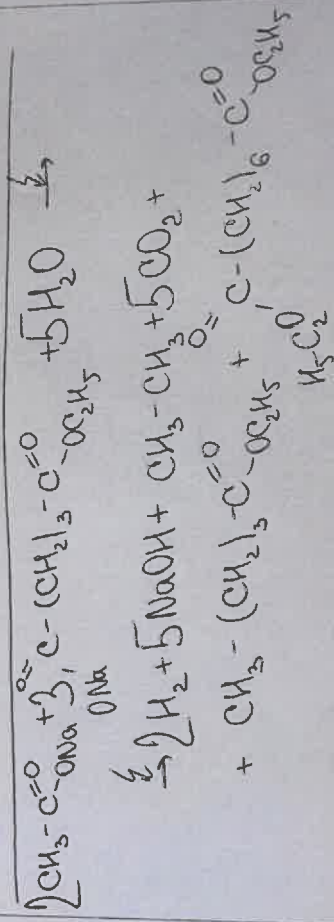 2CH₃-C=O-ONa + 3 O=C(ONa)-(CH₂)₃-C=O-OC₂H₅ + 5H₂O →
→ 2H₂ + 5NaOH + CH₃-CH₃ + 5CO₂ +
+ CH₃-(CH₂)₃-C=O-OC₂H₅ + O=C(H₅C₂O)-(CH₂)₆-C=O-OC₂H₅